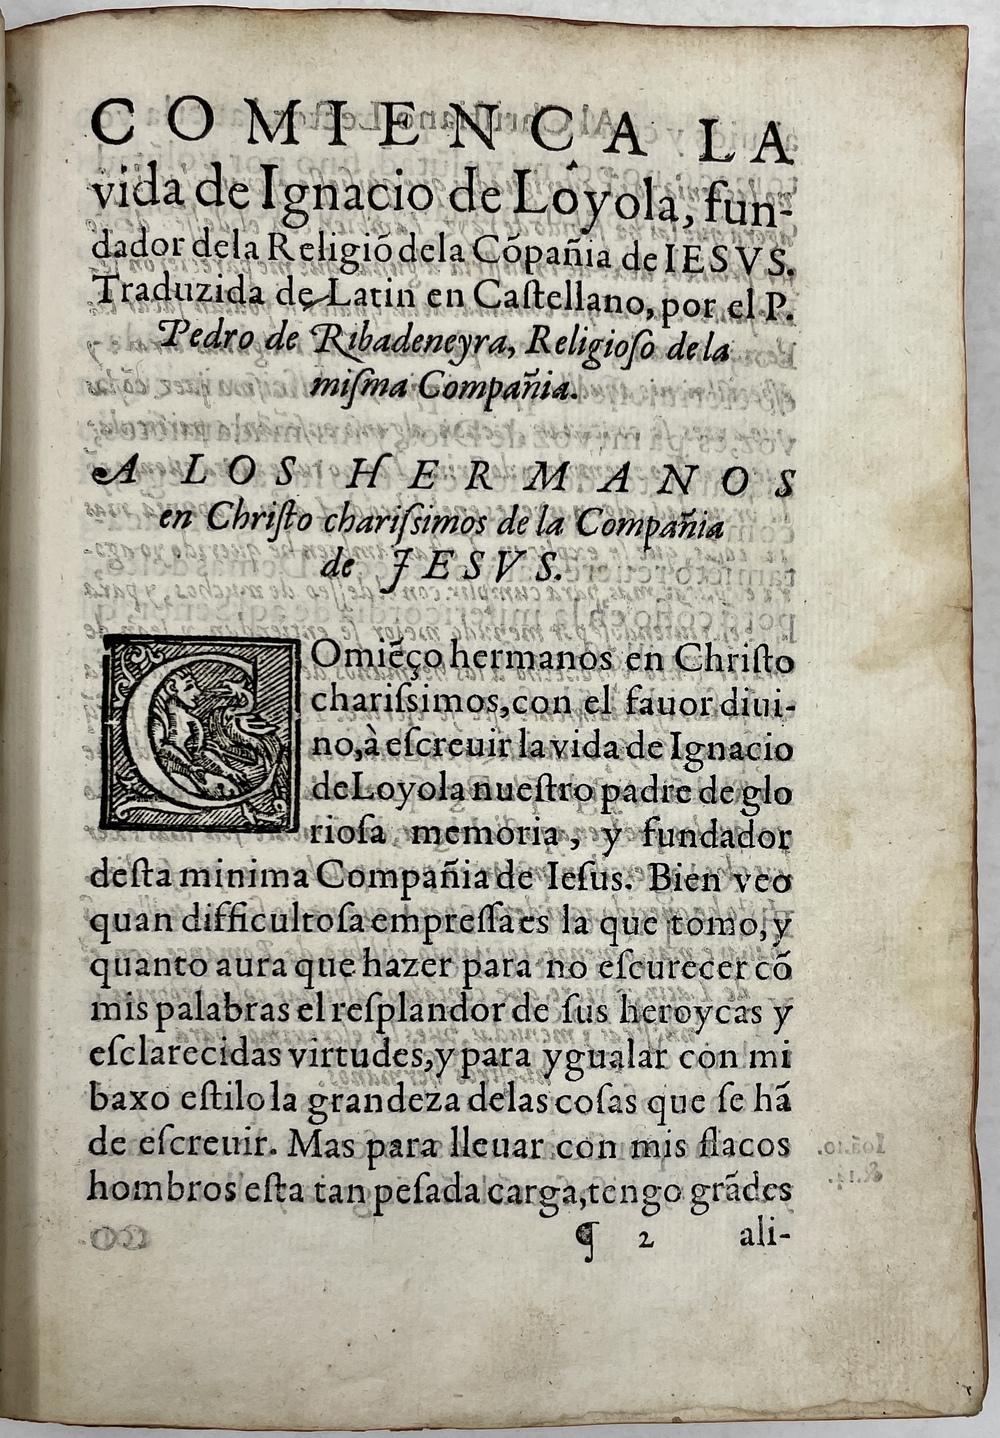 COMIENÇA LA
vida de Ignacio de Loyola, fun-
dador dela Religiõ dela Cõpañia de IESVS.
Traduzida de Latin en Caſtellano, por el P.
Pedro de Ribadeneyra, Religioſo de la
miſma Compañia.
A LOS HERMANOS
en Chriſto chariſsimos de la Compañia
de JESVS.
COmiẽço hermanos en Chriſto
chariſsimos, con el fauor diui-
no, à eſcreuir la vida de Ignacio
de Loyola nueſtro padre de glo
rioſa memoria, y fundador
deſta minima Compañia de Ieſus. Bien veo
quan difficultoſa empreſſa es la que tomo, y
quanto aura que hazer para no eſcurecer cõ
mis palabras el reſplandor de ſus heroycas y
eſclarecidas virtudes, y para ygualar con mi
baxo eſtilo la grandeza delas coſas que ſe hã
de eſcreuir. Mas para lleuar con mis flacos
hombros eſta tan peſada carga, tengo grãdes
¶ 2 ali-